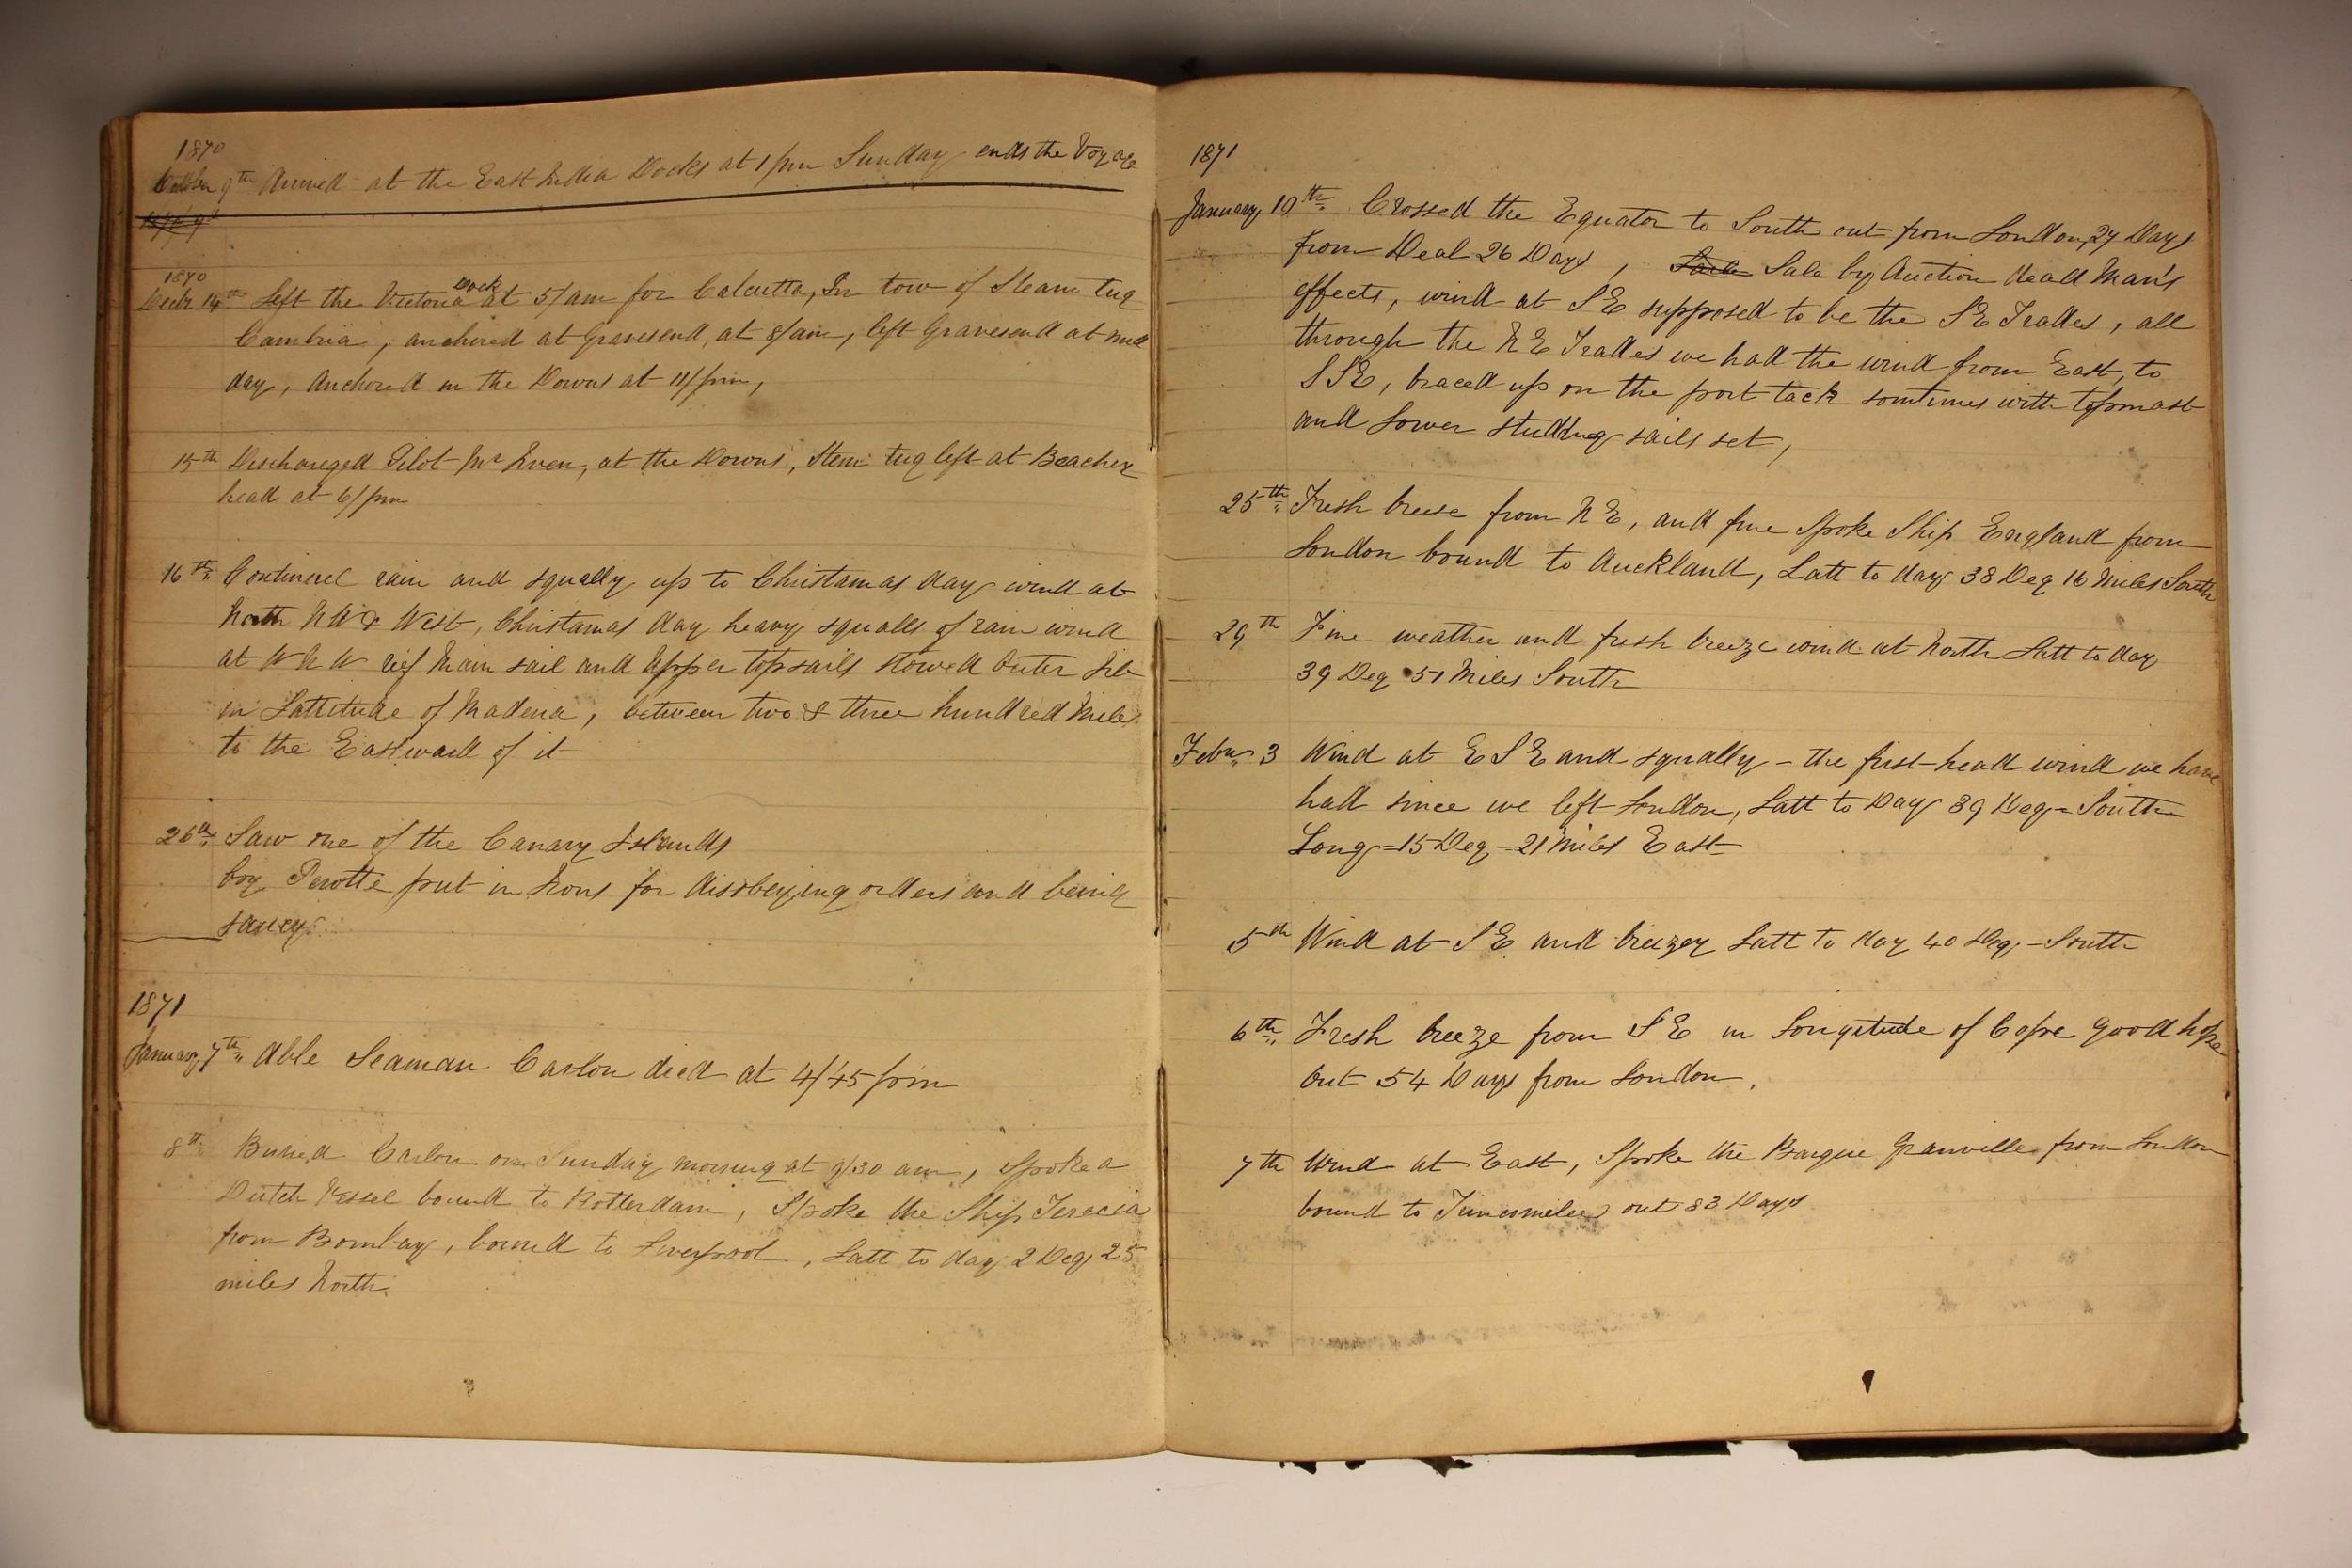 1870
October 9th Arrived at the East India Docks at 1 pm Sunday ends the Voyage
1870
Decbr 14th Left the Victoria Dock at 5/am for Calcutta, In tow of Steam tug
Cambria, anchored at Gravesend, at 8/am, left Gravesend at mid
day, Anchored in the Downs at 11/pm,
15th Dischareged Pilot Mr Iven, at the Downs, Stem tug left at Beachey
head at 6/pm
16th Continuel rain and squally up to Christamas day wind at
North NW & West, Christamas day heavy squalls of rain wind
at W N W rief Main sail and Upper topsails stowed Outer Jib
in Lattitude of Maderia, between two & three hundred Miles
to the Eastward of it
26th Saw one of the Canary Islands
boy Perotte put in Irons for disobeying orders and being
saucy
1871
January 7th Able Seaman Carlon died at 4/45 pm
8th Buried Carlon on Sunday morning at 9/30 am, Spoke a
Dutch Vessel bound to Rotterdam, Spoke the Ship Teresia
from Bombay, bound to Liverpool, Latt to day 2 Deg 25
miles North
1871
January 10th Crossed the Equator to South out from London 27 Days
from Deal 26 Days, Sale by Auction dead Man's
effects, wind at S E supposed to be the S E Trades, all
through the N E Trades we had the wind from East, to
S S E, braced up on the port tack somtimes with topmast
and Lower studding sails set,
25th Fresh breese from N E, and fine Spoke Ship England from
London bound to Auckland, Latt to day 38 Deg 16 Miles South
29th Fine weather and fresh breeze wind at North Latt to day
39 Deg 51 Miles South
Febry 3 Wind at E S E and squally - the first head wind we have
had since we left London, Latt to Day 39 Deg = South
Long = 15 Deg = 21 Miles East
5th Wind at S E and breezey Latt to day 40 Deg - South
6th Fresh breeze from S E in Longitude of Cape Good hope
Out 54 Days from London.
7th Wind at East, Spoke the Barque Granville from London
bound to out 83 Days